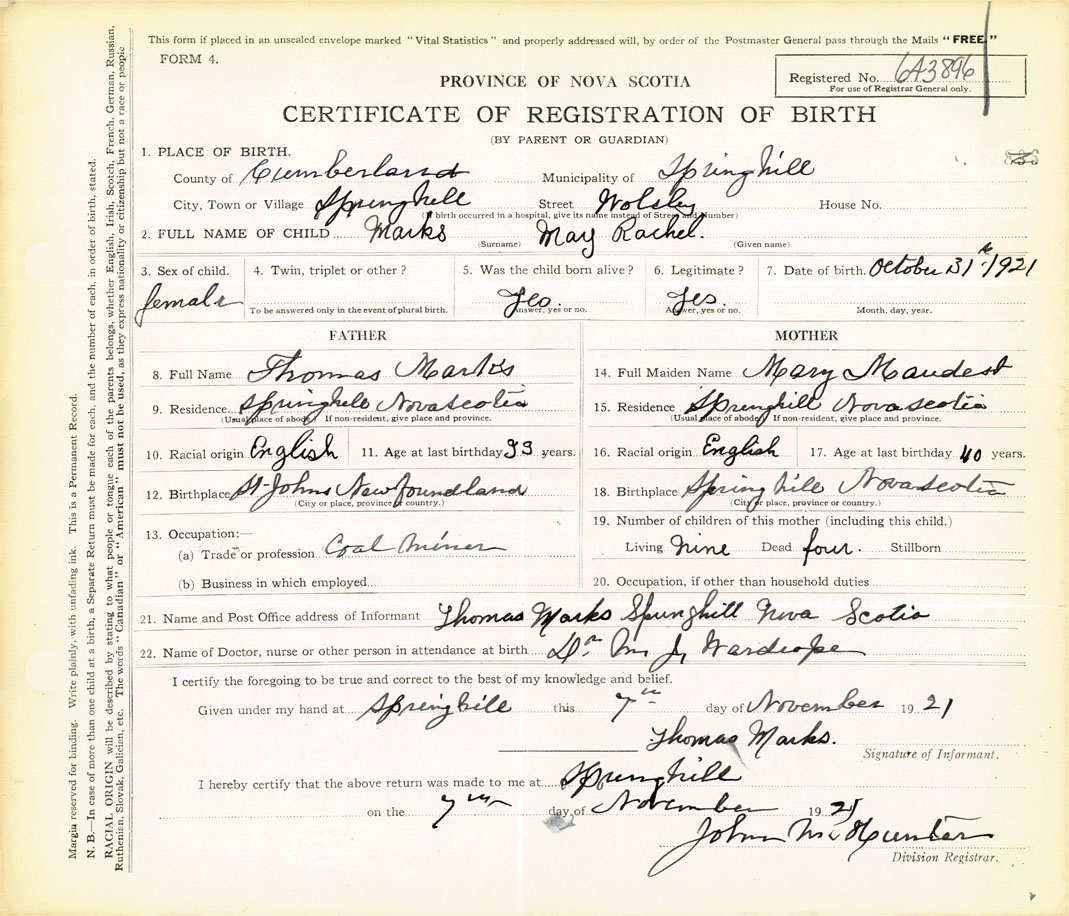 This form if placed in an unsealed envelope marked "Vital Statistics" and properly addressed will, by order of the Postmaster General pass through the Mails "FREE."
FORM 4.
PROVINCE OF NOVA SCOTIA
Registered No. 643896
For use of Registrar General only.
CERTIFICATE OF REGISTRATION OF BIRTH
(BY PARENT OR GUARDIAN)
1. PLACE OF BIRTH.
County of Cumberland Municipality of Springhill
City, Town or Village Springhill Street Wolsley House No.
(If birth occurred in a hospital, give its name instead of Street and Number)
2. FULL NAME OF CHILD Marks May Rachel.
(Surname) (Given name)
3. Sex of child. 4. Twin, triplet or other? 5. Was the child born alive? 6. Legitimate? 7. Date of birth. October 31st 1921
female Yes. Yes.
To be answered only in the event of plural birth. Answer, yes or no. Answer, yes or no. Month, day, year.
FATHER
8. Full Name Thomas Marks
9. Residence Springhill Nova Scotia
(Usual place of abode) If non-resident, give place and province.
10. Racial origin English 11. Age at last birthday 93 years.
12. Birthplace St Johns Newfoundland
(City or place, province or country.)
13. Occupation:—
(a) Trade or profession Coal Miner
(b) Business in which employed
MOTHER
14. Full Maiden Name Mary Maudest
15. Residence Springhill Nova Scotia
(Usual place of abode) If non-resident, give place and province.
16. Racial origin English 17. Age at last birthday 40 years.
18. Birthplace Spring hill Nova Scotia
(City or place, province or country.)
19. Number of children of this mother (including this child.)
Living nine Dead four. Stillborn
20. Occupation, if other than household duties
21. Name and Post Office address of Informant Thomas Marks Springhill Nova Scotia
22. Name of Doctor, nurse or other person in attendance at birth Dr. M J, Wardrope
I certify the foregoing to be true and correct to the best of my knowledge and belief.
Given under my hand at Springhill this 7th day of November 1921
Thomas Marks.
Signature of Informant.
I hereby certify that the above return was made to me at Springhill
on the 7th day of November 1921
John Mc Hunter
Division Registrar.
Margin reserved for binding. Write plainly, with unfading ink. This is a Permanent Record.
N. B.—In case of more than one child at a birth, a Separate Return must be made for each, and the number of each, in order of birth, stated.
RACIAL ORIGIN will be described by stating to what people or tongue each of the parents belongs, whether English, Irish, Scotch, French, German, Russian,
Ruthenian, Slovak, Galician, etc. The words "Canadian" or "American" must not be used, as they express nationality or citizenship but not a race or people